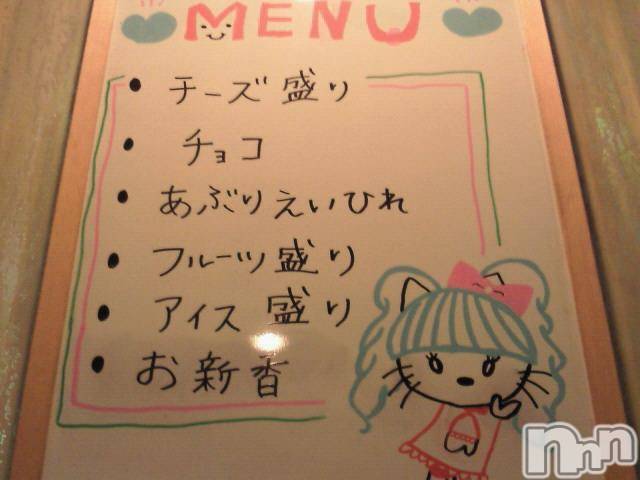 MENU
• チーズ盛り
• チョコ
• あぶりえいひれ
• フルーツ盛り
• アイス盛り
• お新香
nnn